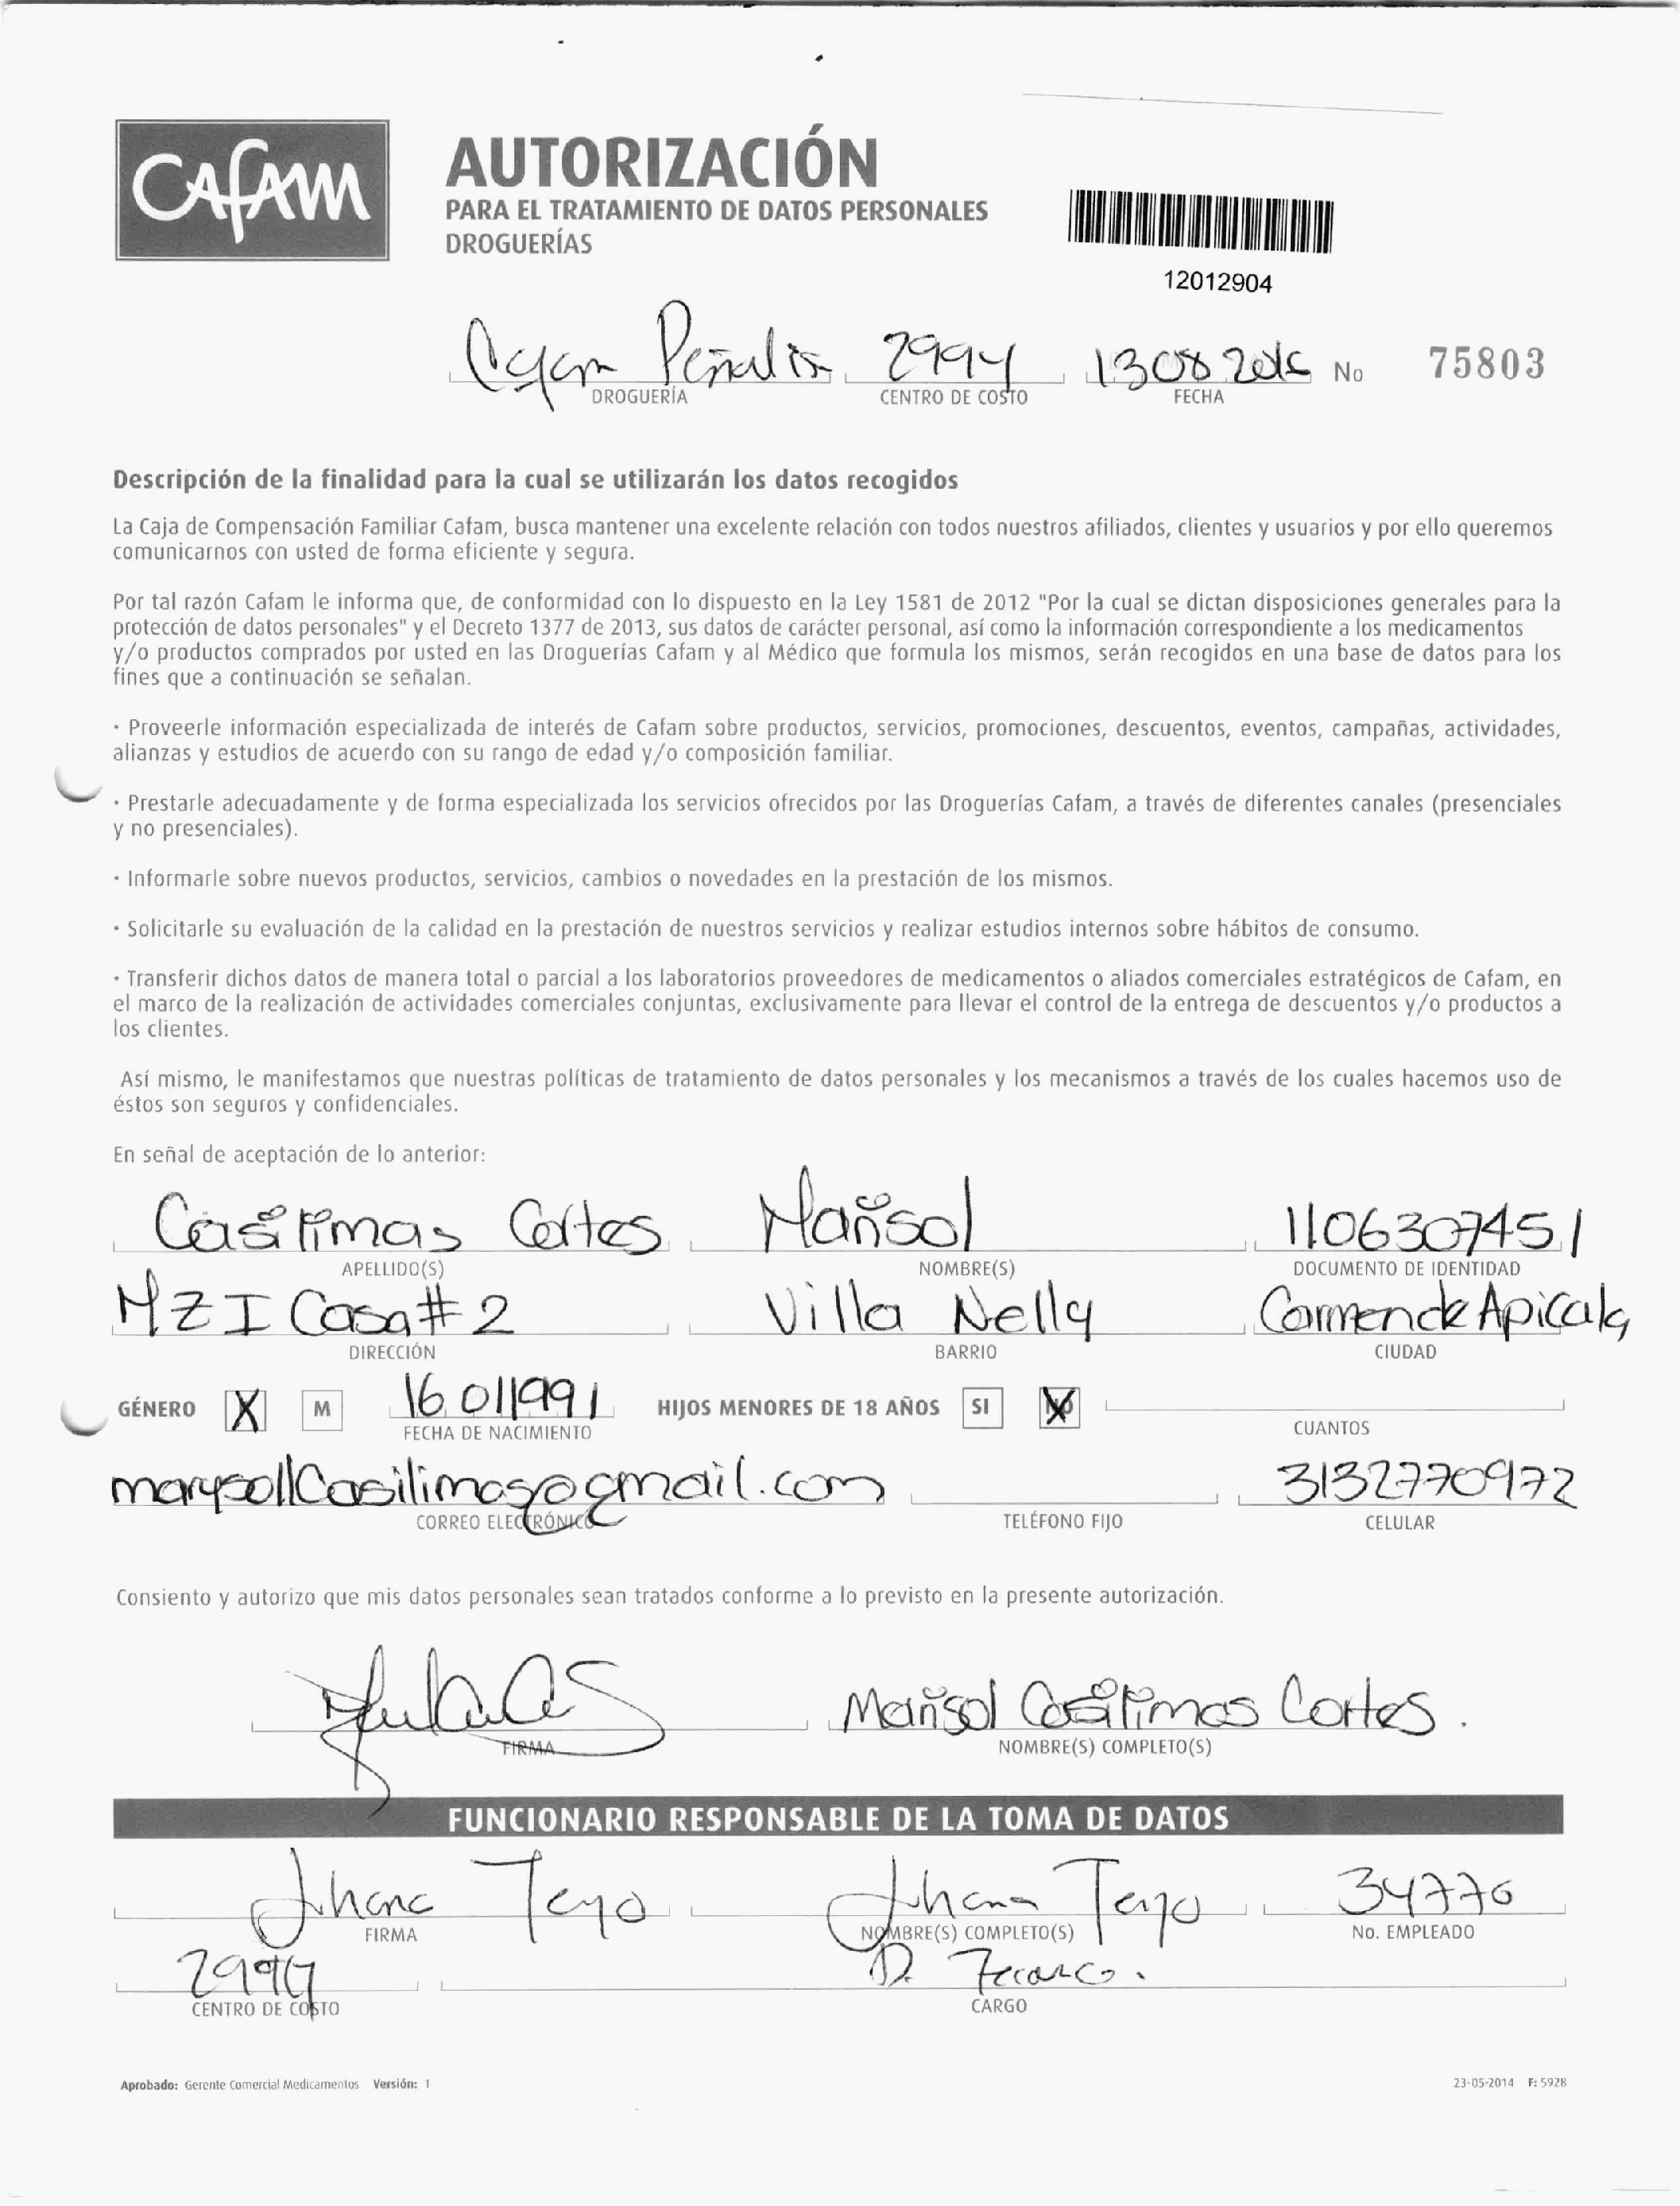 CAFAM
AUTORIZACIÓN
PARA EL TRATAMIENTO DE DATOS PERSONALES
DROGUERÍAS
12012904
Peñalisa 2994 1308 2016 No 75803
DROGUERÍA CENTRO DE COSTO FECHA
Descripción de la finalidad para la cual se utilizarán los datos recogidos
La Caja de Compensación Familiar Cafam, busca mantener una excelente relación con todos nuestros afiliados, clientes y usuarios y por ello queremos
comunicarnos con usted de forma eficiente y segura.
Por tal razón Cafam le informa que, de conformidad con lo dispuesto en la Ley 1581 de 2012 "Por la cual se dictan disposiciones generales para la
protección de datos personales" y el Decreto 1377 de 2013, sus datos de carácter personal, así como la información correspondiente a los medicamentos
y/o productos comprados por usted en las Droguerías Cafam y al Médico que formula los mismos, serán recogidos en una base de datos para los
fines que a continuación se señalan.
· Proveerle información especializada de interés de Cafam sobre productos, servicios, promociones, descuentos, eventos, campañas, actividades,
alianzas y estudios de acuerdo con su rango de edad y/o composición familiar.
· Prestarle adecuadamente y de forma especializada los servicios ofrecidos por las Droguerías Cafam, a través de diferentes canales (presenciales
y no presenciales).
· Informarle sobre nuevos productos, servicios, cambios o novedades en la prestación de los mismos.
· Solicitarle su evaluación de la calidad en la prestación de nuestros servicios y realizar estudios internos sobre hábitos de consumo.
· Transferir dichos datos de manera total o parcial a los laboratorios proveedores de medicamentos o aliados comerciales estratégicos de Cafam, en
el marco de la realización de actividades comerciales conjuntas, exclusivamente para llevar el control de la entrega de descuentos y/o productos a
los clientes.
Así mismo, le manifestamos que nuestras políticas de tratamiento de datos personales y los mecanismos a través de los cuales hacemos uso de
éstos son seguros y confidenciales.
En señal de aceptación de lo anterior:
Casilimas Cortes Marisol 1106307451
APELLIDO(S) NOMBRE(S) DOCUMENTO DE IDENTIDAD
MZ I Casa # 2 Villa Nelly Carmen de Apicala
DIRECCIÓN BARRIO CIUDAD
GÉNERO X M 16 011991 HIJOS MENORES DE 18 AÑOS SI NO X
FECHA DE NACIMIENTO CUANTOS
marysollCasilimas@gmail.com 3132770972
CORREO ELECTRÓNICO TELÉFONO FIJO CELULAR
Consiento y autorizo que mis datos personales sean tratados conforme a lo previsto en la presente autorización.
Marisol Casilimas Cortes.
FIRMA NOMBRE(S) COMPLETO(S)
FUNCIONARIO RESPONSABLE DE LA TOMA DE DATOS
Jhana Teyo Jhana Teyo 34776
FIRMA NOMBRE(S) COMPLETO(S) No. EMPLEADO
2994 D.
CENTRO DE COSTO CARGO
Aprobado: Gerente Comercial Medicamentos Versión: 1 23-05-2014 F: 5928